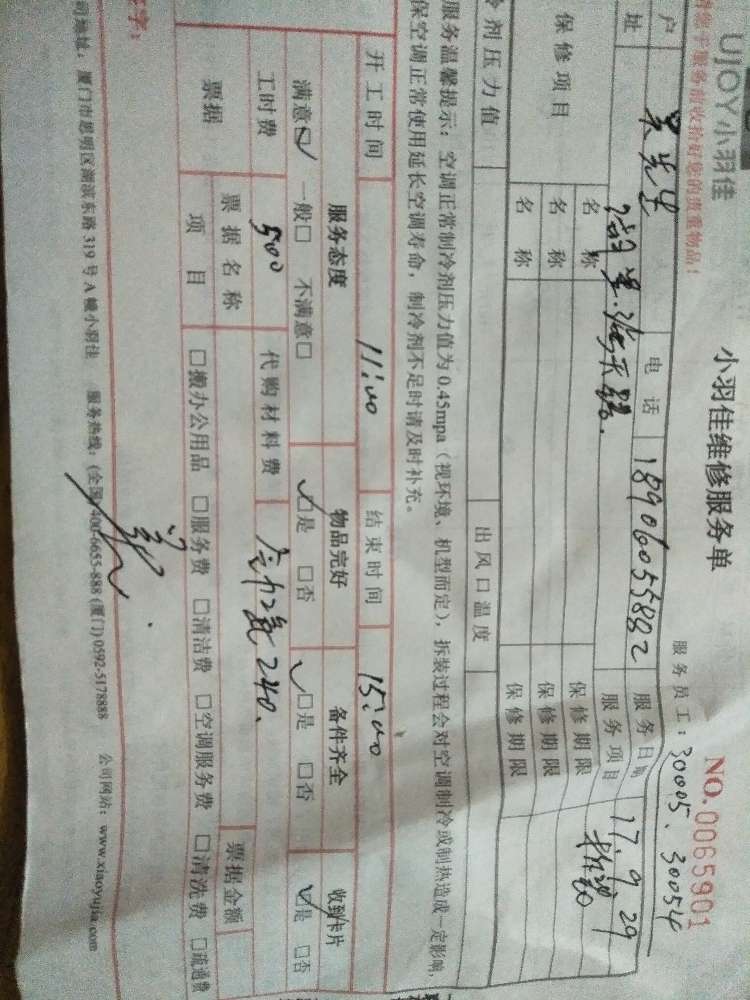 UJOY小羽佳
小羽佳维修服务单
NO.0065901
服务前收拾好您的贵重物品!
服务员工: 30005、30054
户
吴先生
电话
18906055882
服务日期
17.9.29
址
服务项目
保修项目
名称
保修期限
名称
保修期限
名称
保修期限
冷剂压力值
出风口温度
服务温馨提示: 空调正常制冷剂压力值为 0.45mpa (视环境、机型而定), 拆装过程会对空调制冷或制热造成一定影响,
保空调正常使用延长空调寿命, 制冷剂不足时请及时补充。
开工时间
11:00
结束时间
15:00
服务态度
物品完好
备件齐全
收到卡片
满意☑ 一般□ 不满意□
☑是 □否
☑是 □否
☑是 □否
工时费
500
代购材料费
240.
票据
票据名称
票据金额
项目
□搬办公用品 □服务费 □清洁费 □空调服务费 □清洗费 □疏通费
字:
司地址: 厦门市思明区湖滨东路 319 号 A 幢小羽佳 服务热线: (全国)400-6655-888 (厦门) 0592-5178888 公司网站: www.xiaoyujia.com